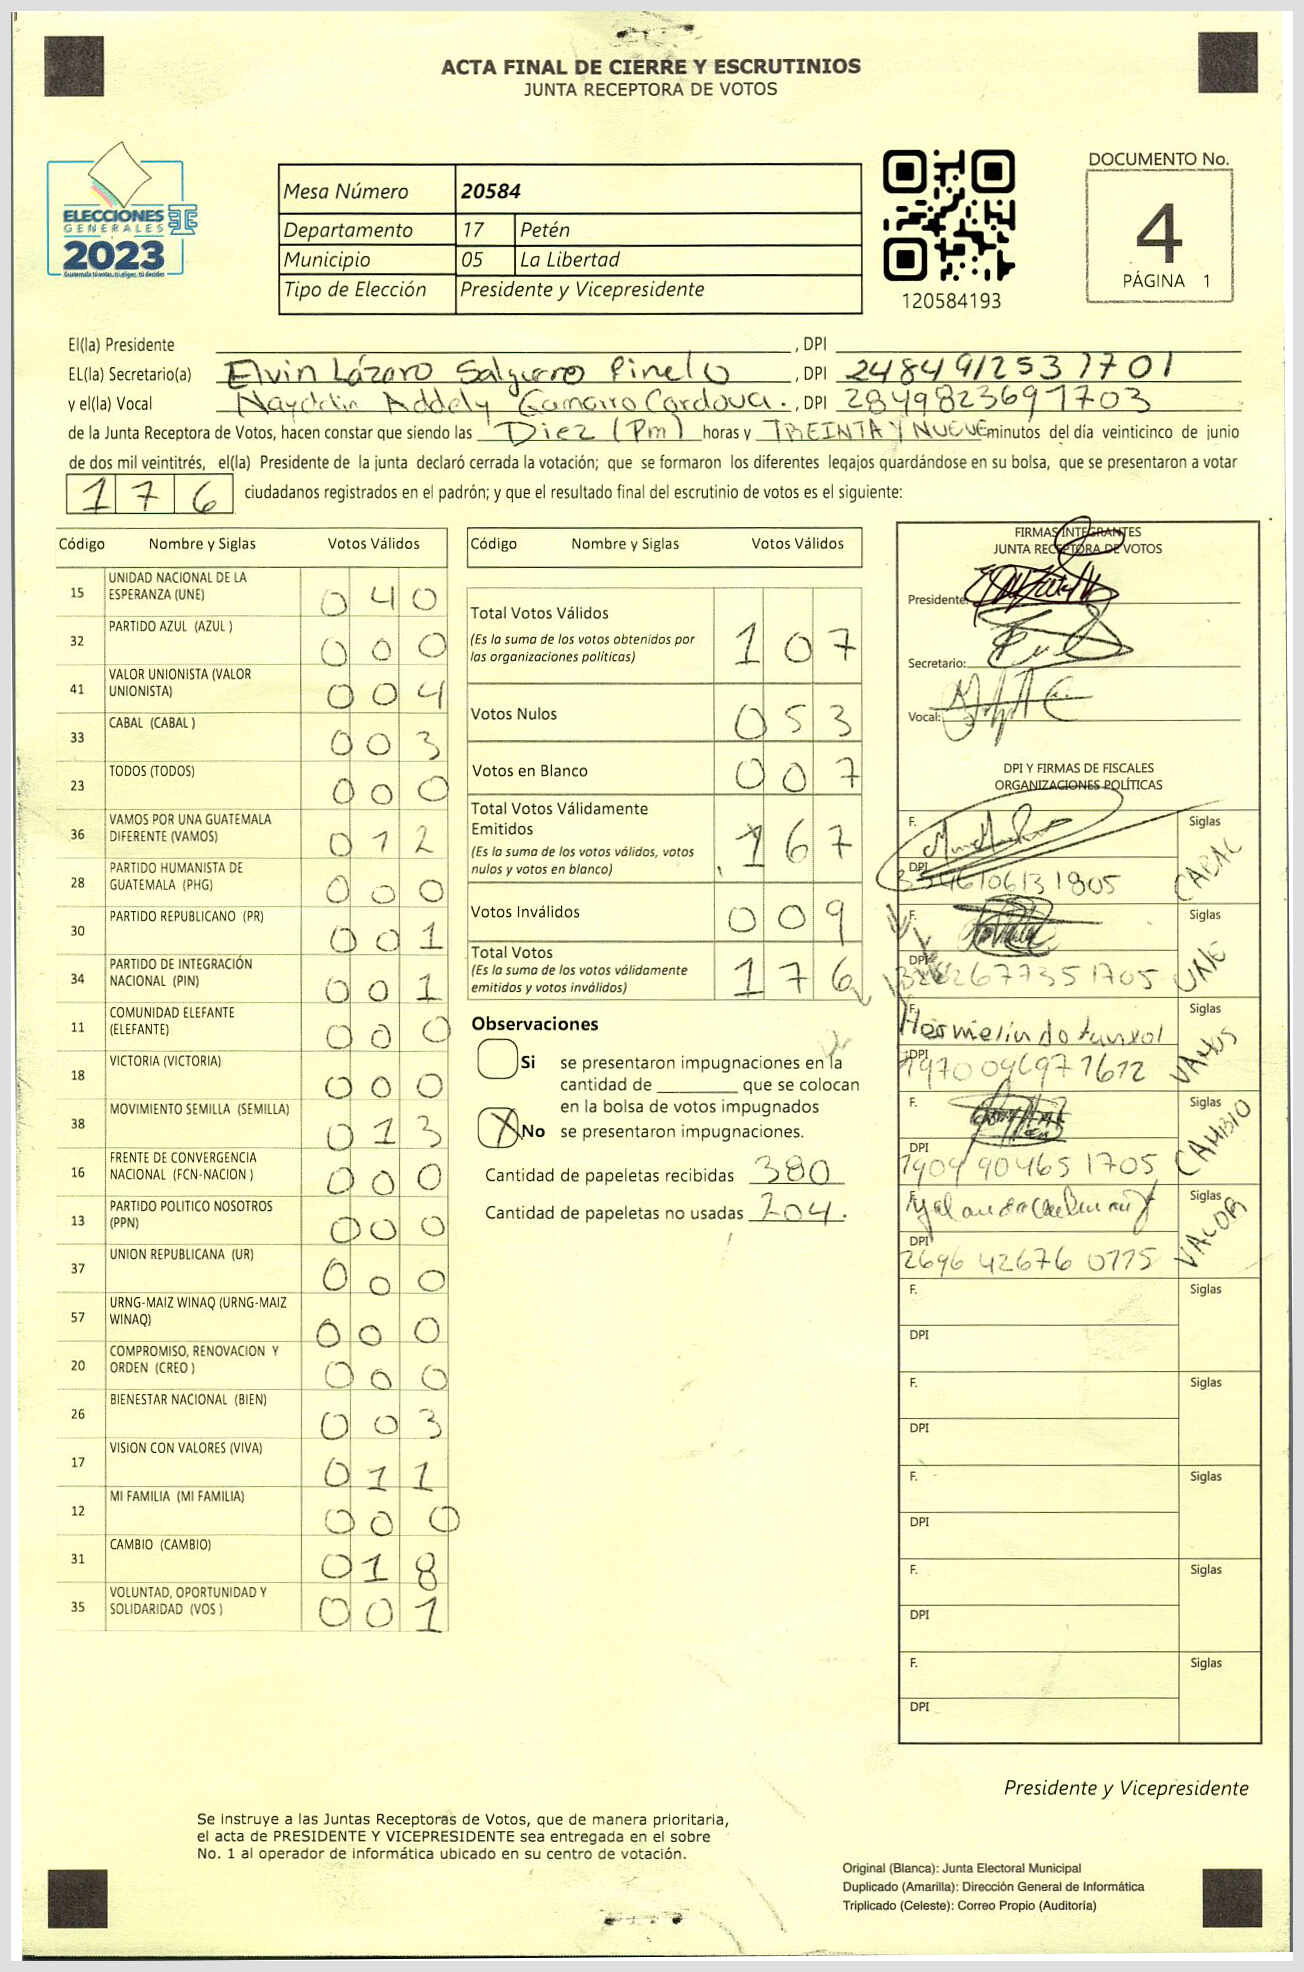 ACTA FINAL DE CIERRE Y ESCRUTINIOS
JUNTA RECEPTORA DE VOTOS
ELECCIONES
GENERALES
2023
Guatemala tú votas, tú eliges, tú decides
Mesa Número 20584
Departamento 17 Petén
Municipio 05 La Libertad
Tipo de Elección Presidente y Vicepresidente
120584193
DOCUMENTO No.
4
PÁGINA 1
El(la) Presidente , DPI
EL(la) Secretario(a) Elvin Lázaro Salguero Pinelo , DPI 2484912531701
y el(la) Vocal Addely Gamarro Cordova. , DPI 2849823691703
de la Junta Receptora de Votos, hacen constar que siendo las Diez (Pm) horas y TREINTA Y NUEVE minutos del día veinticinco de junio
de dos mil veintitrés, el(la) Presidente de la junta declaró cerrada la votación; que se formaron los diferentes legajos guardándose en su bolsa, que se presentaron a votar
176 ciudadanos registrados en el padrón; y que el resultado final del escrutinio de votos es el siguiente:
Código Nombre y Siglas Votos Válidos
15 UNIDAD NACIONAL DE LA ESPERANZA (UNE) 040
32 PARTIDO AZUL (AZUL ) 000
41 VALOR UNIONISTA (VALOR UNIONISTA) 004
33 CABAL (CABAL ) 003
23 TODOS (TODOS) 000
36 VAMOS POR UNA GUATEMALA DIFERENTE (VAMOS) 012
28 PARTIDO HUMANISTA DE GUATEMALA (PHG) 000
30 PARTIDO REPUBLICANO (PR) 001
34 PARTIDO DE INTEGRACIÓN NACIONAL (PIN) 001
11 COMUNIDAD ELEFANTE (ELEFANTE) 000
18 VICTORIA (VICTORIA) 000
38 MOVIMIENTO SEMILLA (SEMILLA) 013
16 FRENTE DE CONVERGENCIA NACIONAL (FCN-NACION ) 000
13 PARTIDO POLITICO NOSOTROS (PPN) 000
37 UNION REPUBLICANA (UR) 000
57 URNG-MAIZ WINAQ (URNG-MAIZ WINAQ) 000
20 COMPROMISO, RENOVACION Y ORDEN (CREO ) 000
26 BIENESTAR NACIONAL (BIEN) 003
17 VISION CON VALORES (VIVA) 011
12 MI FAMILIA (MI FAMILIA) 000
31 CAMBIO (CAMBIO) 018
35 VOLUNTAD, OPORTUNIDAD Y SOLIDARIDAD (VOS ) 001
Código Nombre y Siglas Votos Válidos
Total Votos Válidos 107
(Es la suma de los votos obtenidos por
las organizaciones políticas)
Votos Nulos 053
Votos en Blanco 007
Total Votos Válidamente
Emitidos 167
(Es la suma de los votos válidos, votos
nulos y votos en blanco)
Votos Inválidos 009
Total Votos 176
(Es la suma de los votos válidamente
emitidos y votos inválidos)
Observaciones
Si se presentaron impugnaciones en la
cantidad de que se colocan
en la bolsa de votos impugnados
X No se presentaron impugnaciones.
Cantidad de papeletas recibidas 380
Cantidad de papeletas no usadas 204.
FIRMAS INTEGRANTES
JUNTA RECEPTORA DE VOTOS
Presidente:
Secretario:
Vocal:
DPI Y FIRMAS DE FISCALES
ORGANIZACIONES POLÍTICAS
F. Siglas CABAL
DPI
F. Siglas UNE
DPI
F. Hermelindo Siglas VAMOS
DPI
F. Siglas CAMBIO
DPI 1909904651705
F. Siglas VALOR
DPI 2696426760115
F. Siglas
DPI
F. Siglas
DPI
F. Siglas
DPI
F. Siglas
DPI
F. Siglas
DPI
Presidente y Vicepresidente
Se instruye a las Juntas Receptoras de Votos, que de manera prioritaria,
el acta de PRESIDENTE Y VICEPRESIDENTE sea entregada en el sobre
No. 1 al operador de informática ubicado en su centro de votación.
Original (Blanca): Junta Electoral Municipal
Duplicado (Amarilla): Dirección General de Informática
Triplicado (Celeste): Correo Propio (Auditoría)